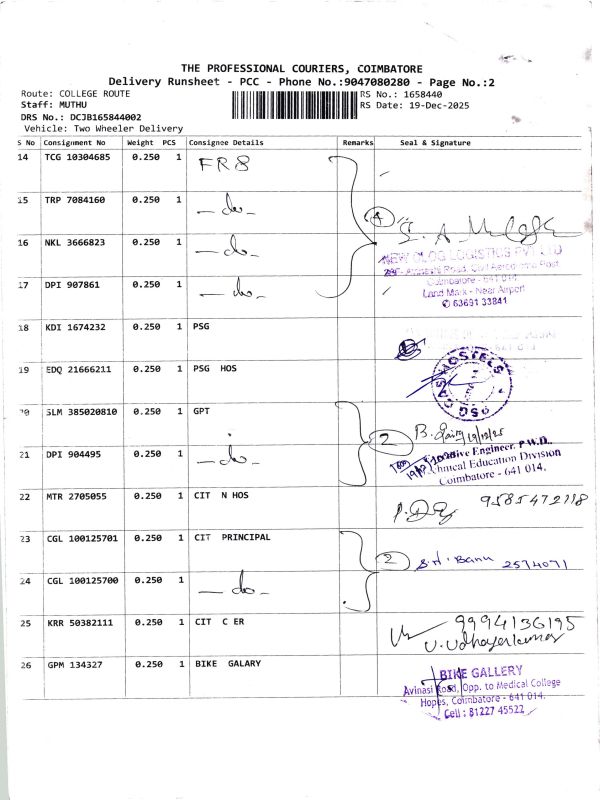 THE PROFESSIONAL COURIERS, COIMBATORE
Delivery Runsheet - PCC - Phone No.:9047080280 - Page No.:2
Route: COLLEGE ROUTE
RS No.: 1658440
Staff: MUTHU
RS Date: 19-Dec-2025
DRS No.: DCJB165844002
Vehicle: Two Wheeler Delivery
S No Consignment No Weight PCS Consignee Details Remarks Seal & Signature
14 TCG 10304685 0.250 1 FR8
15 TRP 7084160 0.250 1 — do —
4
16 NKL 3666823 0.250 1 — do —
NEW GLOG LOGISTICS PVT LTD
Avinashi Road, Civil Aerodrome Post
Coimbatore - 641 014.
17 DPI 907861 0.250 1 — do —
Land Mark - Near Airport
✆ 63691 33841
18 KDI 1674232 0.250 1 PSG
19 EDQ 21666211 0.250 1 PSG HOS
PSG CAS HOSTELS
20 SLM 385020810 0.250 1 GPT
2
19/12/25
21 DPI 904495 0.250 1 — do —
Executive Engineer, P.W.D.,
Technical Education Division
Coimbatore - 641 014.
22 MTR 2705055 0.250 1 CIT N HOS
9585472118
23 CGL 100125701 0.250 1 CIT PRINCIPAL
2
S.H. Banu 2574071
24 CGL 100125700 0.250 1 — do —
25 KRR 50382111 0.250 1 CIT C ER
9994136195
U. Udhayakumar
26 GPM 134327 0.250 1 BIKE GALARY
BIKE GALLERY
Avinasi Road, Opp. to Medical College
Hopes, Coimbatore - 641 014.
Cell : 81227 45522